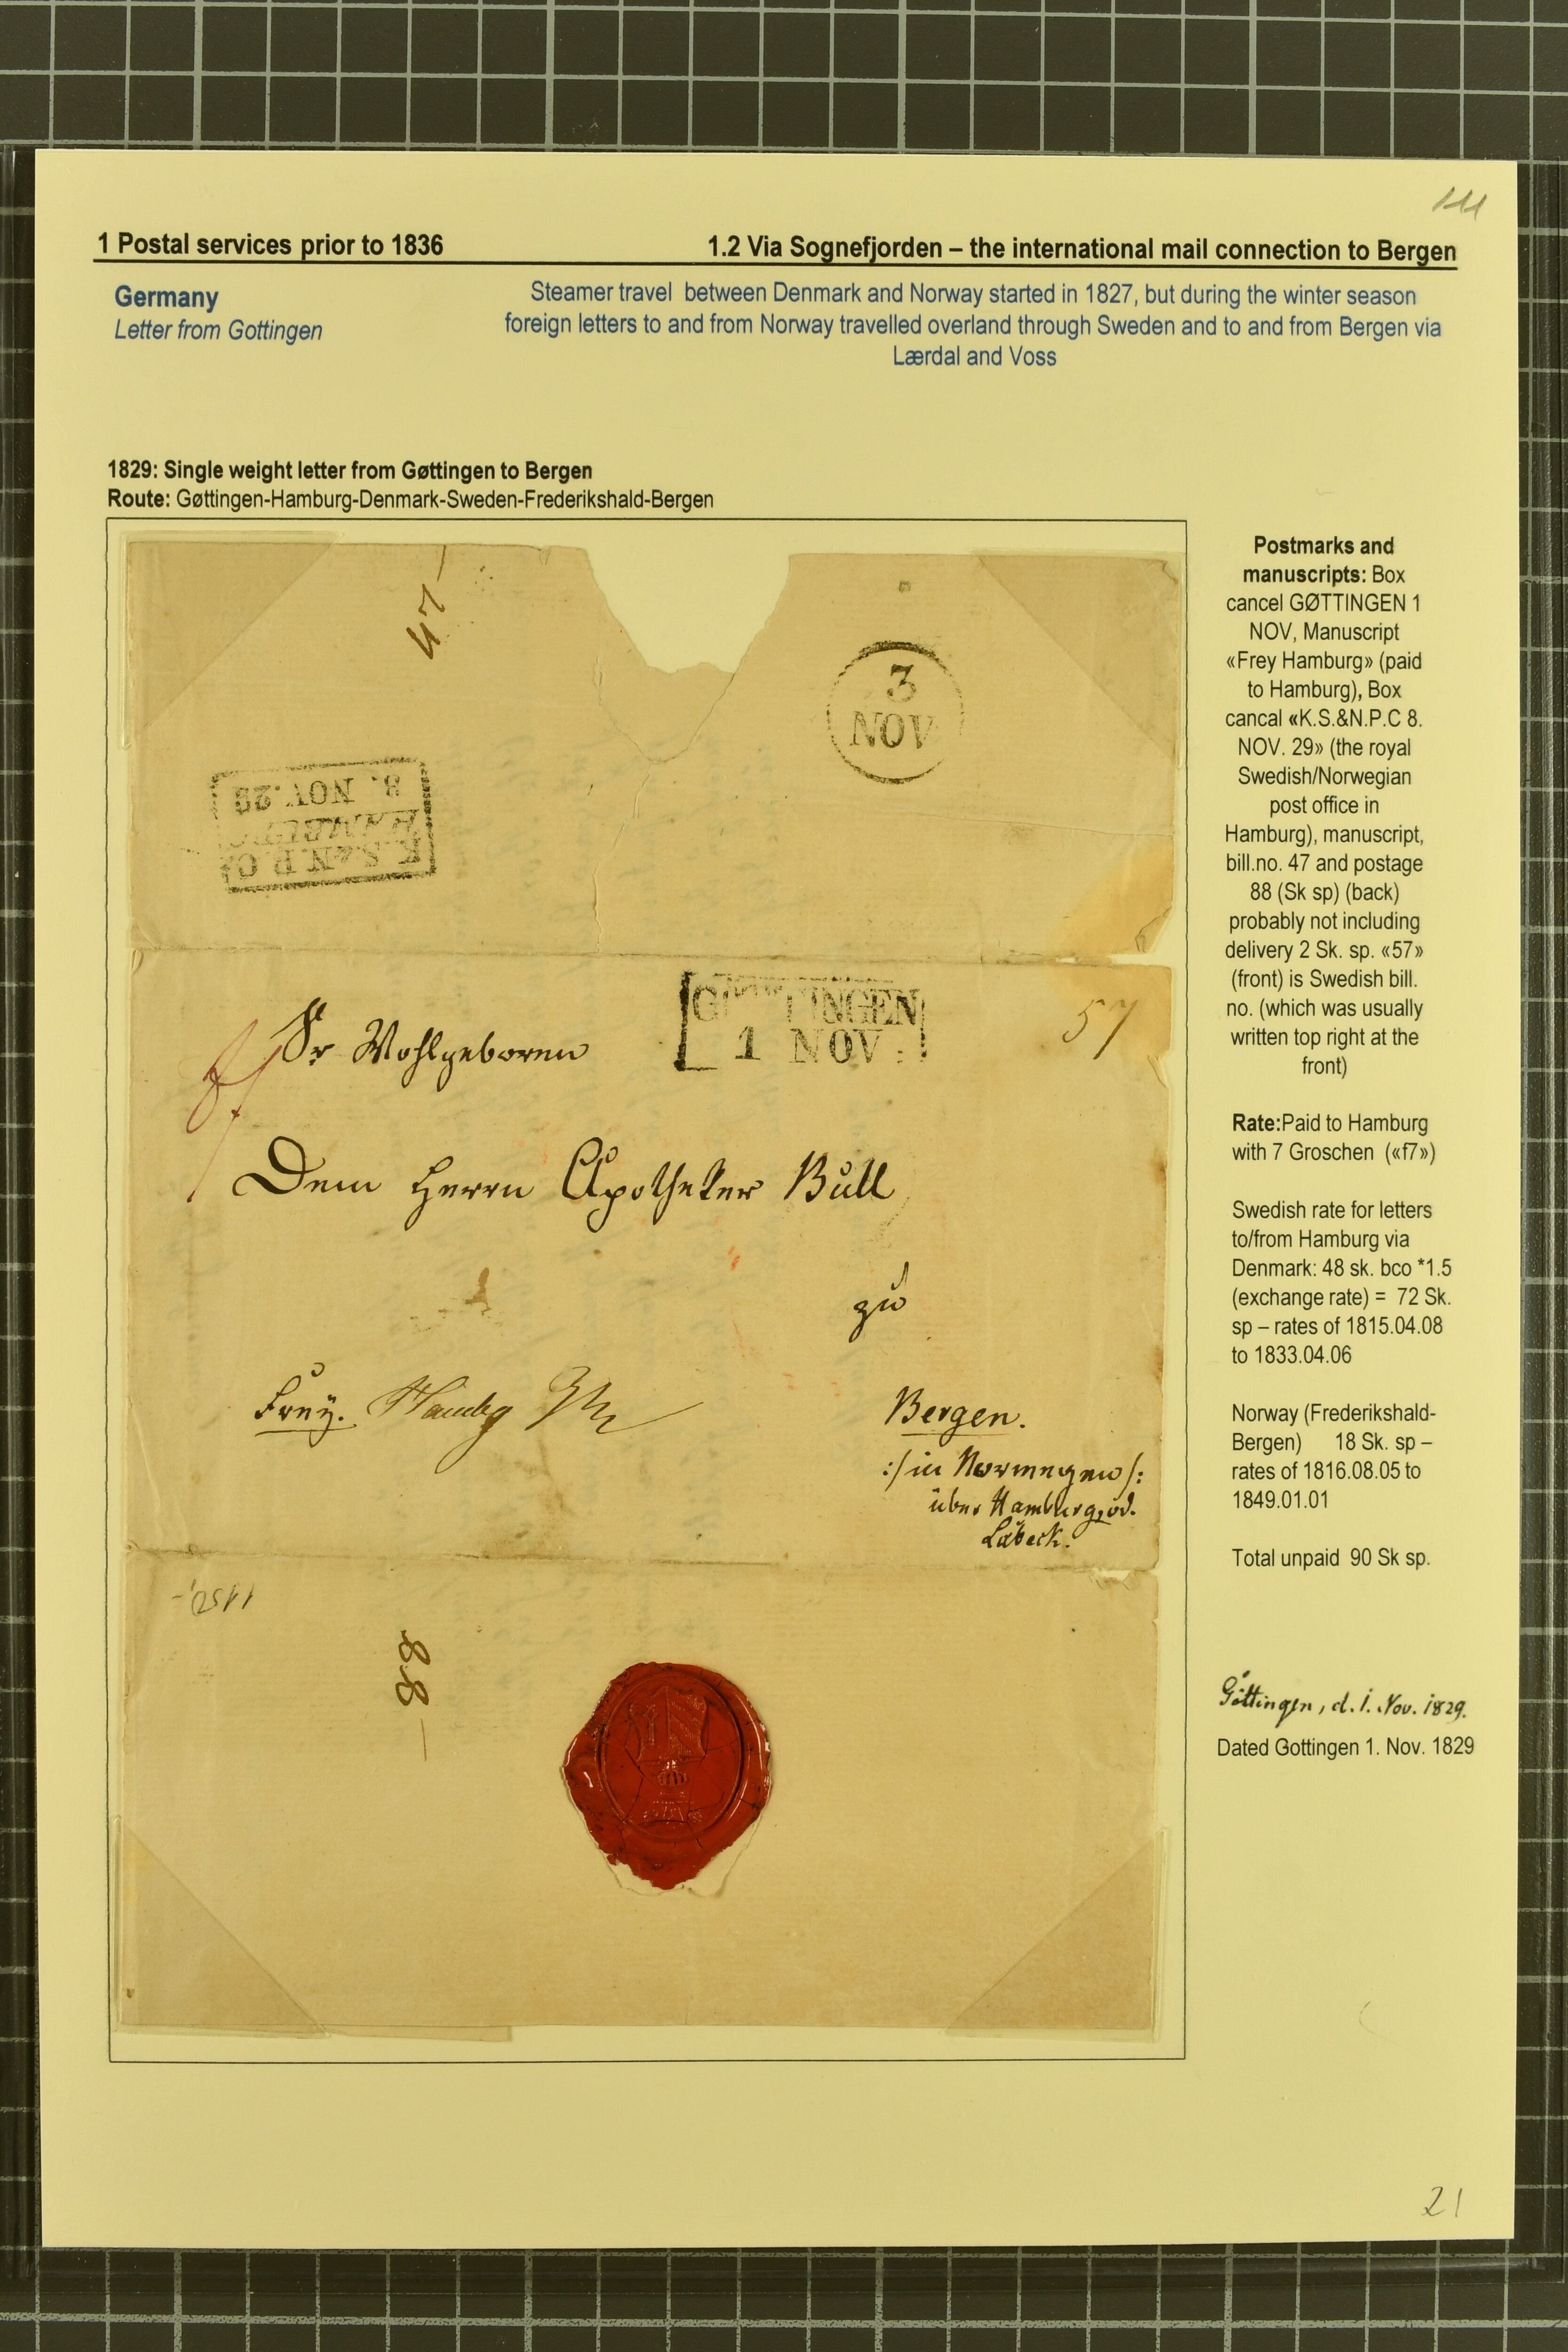 1 Postal services prior to 1836
1.2 Via Sognefjorden – the international mail connection to Bergen
Germany
Letter from Gottingen
Steamer travel between Denmark and Norway started in 1827, but during the winter season
foreign letters to and from Norway travelled overland through Sweden and to and from Bergen via
Lærdal and Voss
1829: Single weight letter from Gøttingen to Bergen
Route: Gøttingen-Hamburg-Denmark-Sweden-Frederikshald-Bergen
47
3
NOV
K.S.&N.P.C.
HAMBURG
8. NOV. 29
GÖTTINGEN
1 NOV.
57
Sr Wohlgeboren
f7
Dem Herrn Apotheker Bull
zu
Frey. Hambg
Bergen.
:/in Norwegen/:
über Hamburg, od.
Lübeck.
88
Postmarks and
manuscripts: Box
cancel GØTTINGEN 1
NOV, Manuscript
«Frey Hamburg» (paid
to Hamburg), Box
cancal «K.S.&N.P.C 8.
NOV. 29» (the royal
Swedish/Norwegian
post office in
Hamburg), manuscript,
bill.no. 47 and postage
88 (Sk sp) (back)
probably not including
delivery 2 Sk. sp. «57»
(front) is Swedish bill.
no. (which was usually
written top right at the
front)
Rate:Paid to Hamburg
with 7 Groschen («f7»)
Swedish rate for letters
to/from Hamburg via
Denmark: 48 sk. bco *1.5
(exchange rate) = 72 Sk.
sp – rates of 1815.04.08
to 1833.04.06
Norway (Frederikshald-
Bergen) 18 Sk. sp –
rates of 1816.08.05 to
1849.01.01
Total unpaid 90 Sk sp.
Göttingen, d. 1. Nov. 1829.
Dated Gottingen 1. Nov. 1829
21